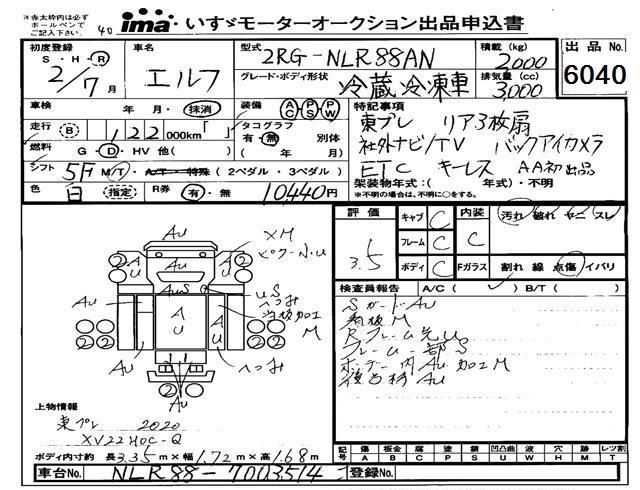 ※赤太枠内は必ず
ボールペンで
ご記入下さい。
40
ima いすゞモーターオークション出品申込書
初度登録
S・H・R
2/7月
車名
エルフ
型式
2RG-NLR88AN
グレード・ボディ形状
冷蔵冷凍車
積載(kg)
2000
排気量(cc)
3000
出品No.
6040
車検
年 月・抹消
装備
AC PS PW
走行 B 122 000km
タコグラフ
有・無 別体
( 年 月)
燃料
G・D・HV 他( )
シフト
5F M/T・A/T・特殊(2ペダル・3ペダル)
色 白 指定
R券 有・無 10,440円
特記事項
東プレ リア3枚扇
社外ナビ/TV バックアイカメラ
ETC キーレス AA初出品
架装物年式:( 年式)・不明
※不明の場合は、不明に○をする。
評価
3.5
キャブ C
フレーム C
ボディ C
内装 C
汚れ 破れ ヤニ スレ
Fガラス 割れ 線 点傷 イバリ
検査員報告 A/C( ) B/T( )
SガードAU
看板M
Rフレーム先U
フレーム一部S
ボデー内AU加工M
後台枠AU
AU
XM
ピラー小U
AU
AUS
US
へつみ
当板加工
M
AU
AU
へつみ
上物情報
東プレ 2020
XV22HOC-Q
ボディ内寸約 長3.35m×幅1.72m×高1.68m
記号
傷 A
板金 B
腐 C
塗 P
錆 S
凹凸曲 U
波 W
穴 H
跡 M
レツ割 T
車台No. NLR88-7003514
登録No.